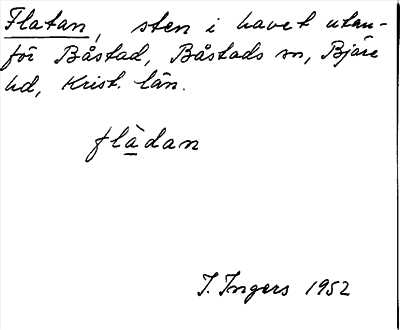 Flatan, sten i havet utan-
för Båstad, Båstads sn, Bjäre
hd, Krist. län.
flàdan
I. Ingers 1952